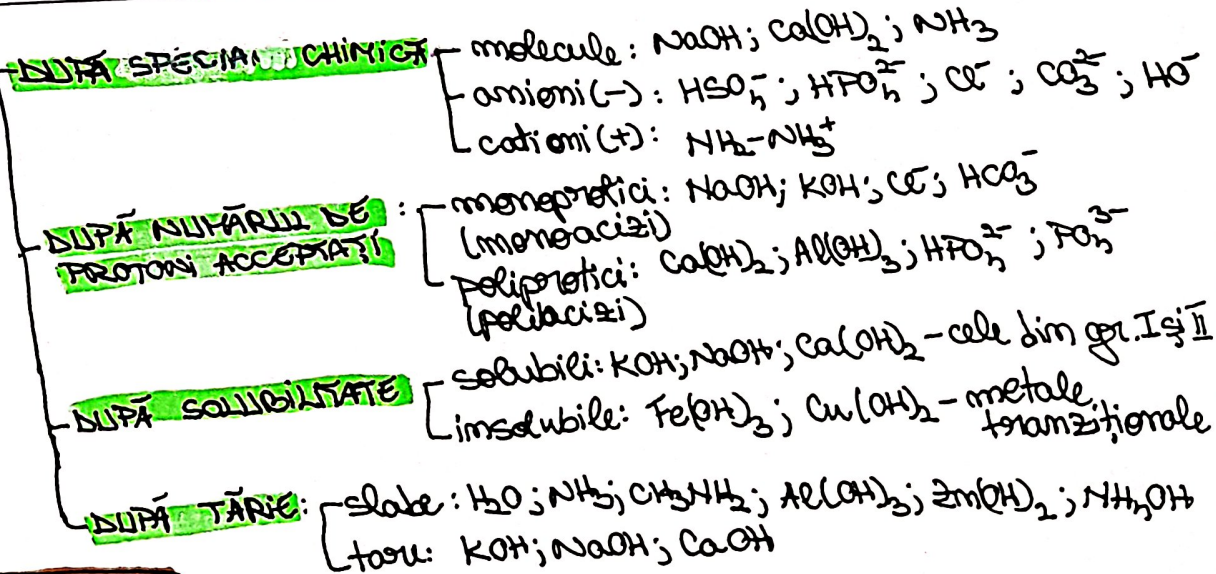 DUPĂ SPECIA CHIMICĂ
molecule: NaOH; Ca(OH)₂; NH₃
anioni(-): HSO₄⁻; HPO₄²⁻; Cl⁻; CO₃²⁻; HO⁻
cationi(+): NH₂-NH₃⁺
DUPĂ NUMĂRUL DE PROTONI ACCEPTAȚI :
monoprotici: NaOH; KOH; Cl⁻; HCO₃⁻
(monoacizi)
poliprotici: Ca(OH)₂; Al(OH)₃; HPO₄²⁻; PO₄³⁻
(poliacizi)
DUPĂ SOLUBILITATE
solubili: KOH; NaOH; Ca(OH)₂ - cele din gr. I și II
insolubile: Fe(OH)₃; Cu(OH)₂ - metale
tranziționale
DUPĂ TĂRIE:
slabe: H₂O; NH₃; CH₃NH₂; Al(OH)₃; Zn(OH)₂; NH₄OH
tari: KOH; NaOH; CaOH